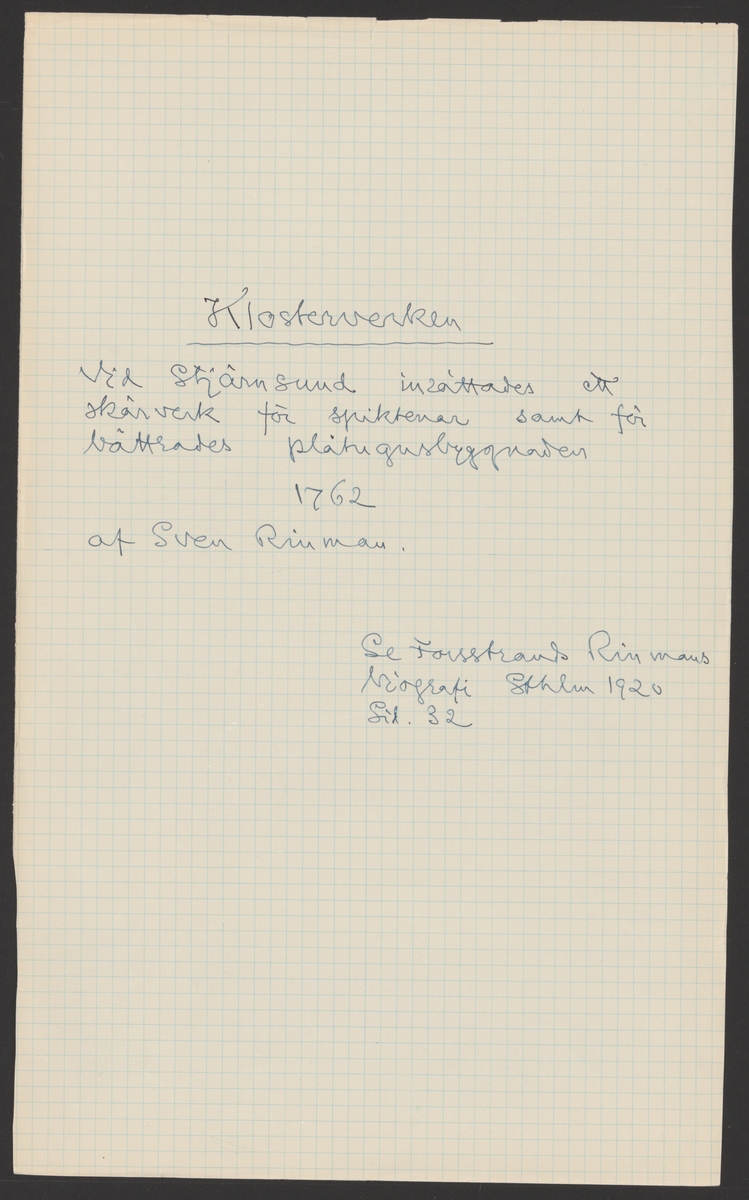 Klosterverken
Vid Stjärnsund inrättades ett
skärverk för spiktenar samt för
bättrades plåtugnsbyggnaden
1762
af Sven Rinman.
Se Forsstrands Rinmans
biografi Sthlm 1920
Sid. 32